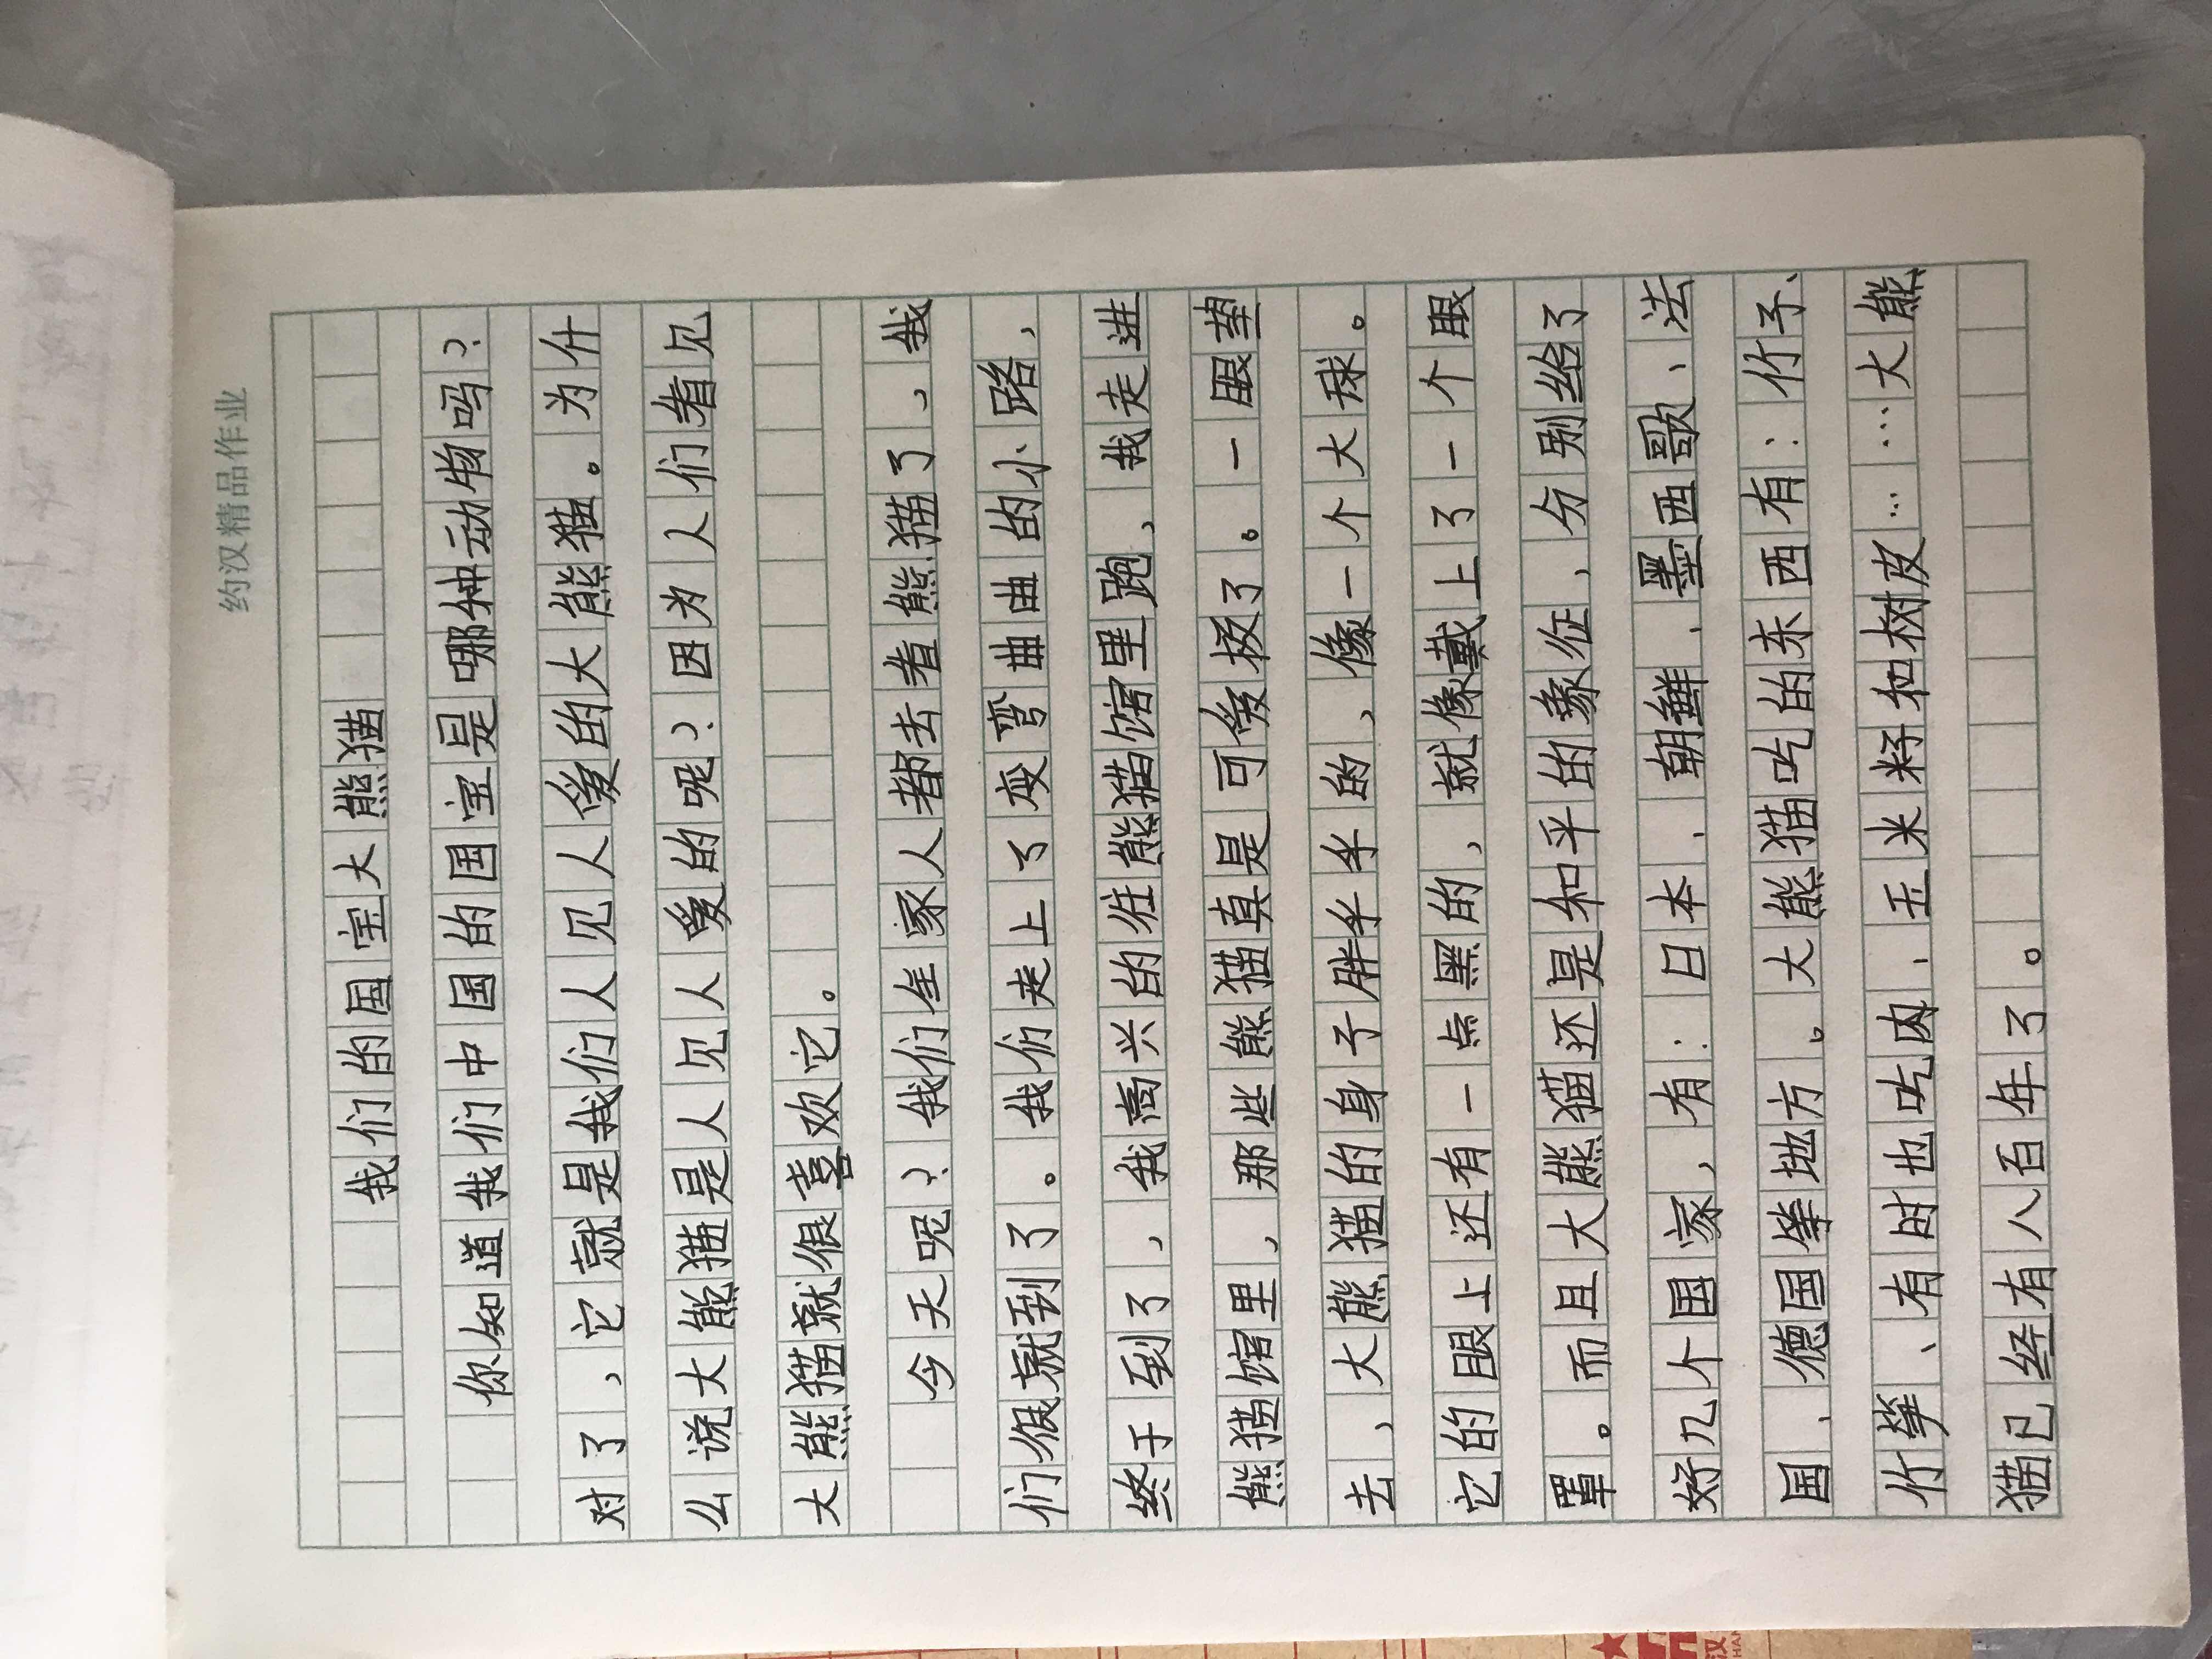 约汉精品作业
我们的国宝大熊猫
你知道我们中国的国宝是哪种动物吗?
对了,它就是我们人见人爱的大熊猫。为什
么说大熊猫是人见人爱的呢?因为人们看见
大熊猫就很喜欢它。
今天呢?我们全家人都去看熊猫了,我
们很就到了。我们走上了变弯曲曲的小路,
终于到了,我高兴的往熊猫馆里跑,我走进
熊猫馆里,那些熊猫真是可爱极了。一眼望
去,大熊猫的身子胖乎乎的,像一个大球。
它的眼上还有一点黑的,就像戴上了一个眼
罩。而且大熊猫还是和平的象征,分别给了
好几个国家,有:日本、朝鲜、墨西歌、法
国、德国等地方。大熊猫吃的东西有:竹子、
竹笋、有时也吃肉、玉米籽和树皮……大熊
猫已经有八百年了。
汉